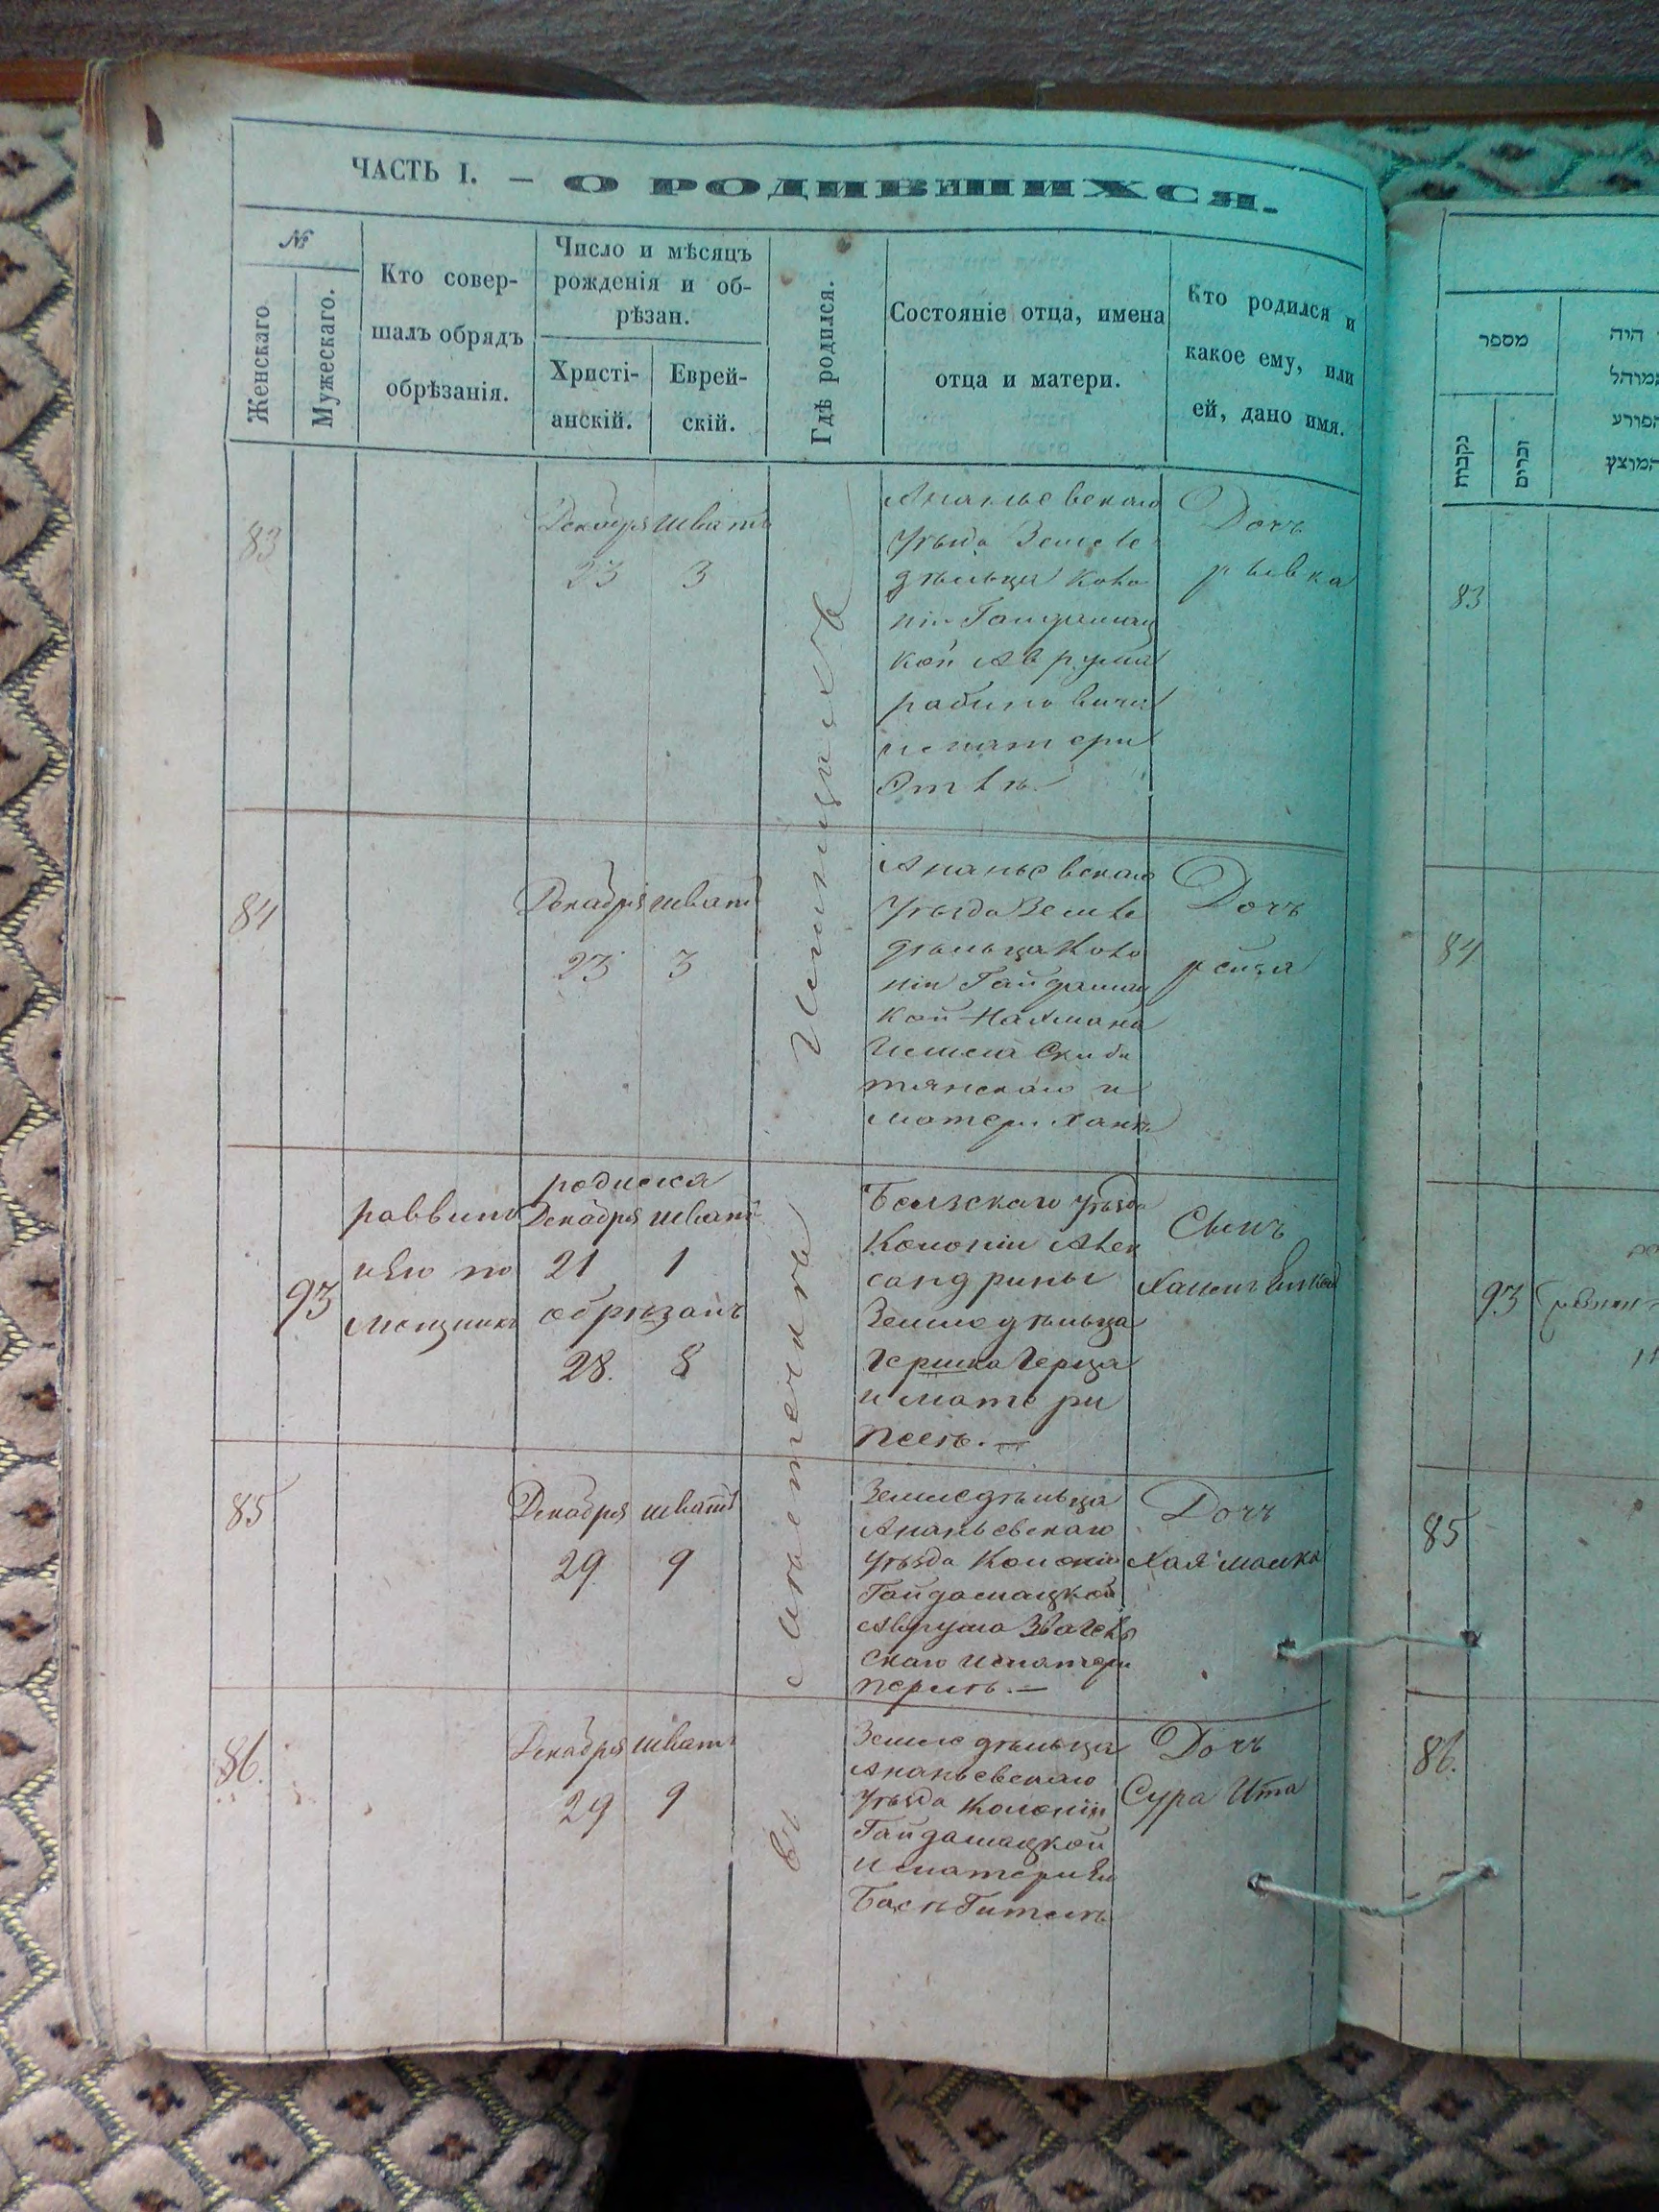 ЧАСТЬ I. — О РОДИВШИХСЯ.
№
Женскаго
Мужескаго.
Кто совер-
шалъ обрядъ
обрѣзанія.
Число и мѣсяцъ
рожденія и об-
рѣзан.
Христі-
анскій.
Еврей-
скій.
Гдѣ родился.
Состояніе отца, имена
отца и матери.
Кто родился и
какое ему, или
ей, дано имя.
въ мѣстечкѣ
83
Декабря шватъ
23 3
Ананьевскаго
уѣзда Землe
дѣльца коло
ніи Гайдамац
кой Аврума
рабиновича
и матери
Этлѣ.
Дочь
рывка
84
Декабря шватъ
23 3
Ананьевскаго
уѣзда Земле
дѣльца Коло
ніи Гайдамац
кой Нахмана
и матери Ханѣ
Дочь
рейзя
93
раввинъ
и его по
мощникъ
родился
Декабря шватъ
21 1
обрѣзанъ
28. 8
Бельзскаго уѣзда
Колоніи Алек
сандрины
Земледѣльца
Гершка Герца
и матери
Песѣ. —
Сынъ
85
Декабря шватъ
29 9
Земледѣльца
Ананьевскаго
уѣзда Колоніи
Гайдамацкой
Аврума
скаго и матери
перлѣ. —
Дочь
Хая малка
86.
Декабря шватъ
29 9
Земледѣльца
Ананьевскаго
уѣзда Колоніи
Гайдамацкой
и матери
Дочь
Сура Ита
מספר
נקבות
זכרים
היה
המוהל
הפורע
המוצץ
83
84
93
85
86.